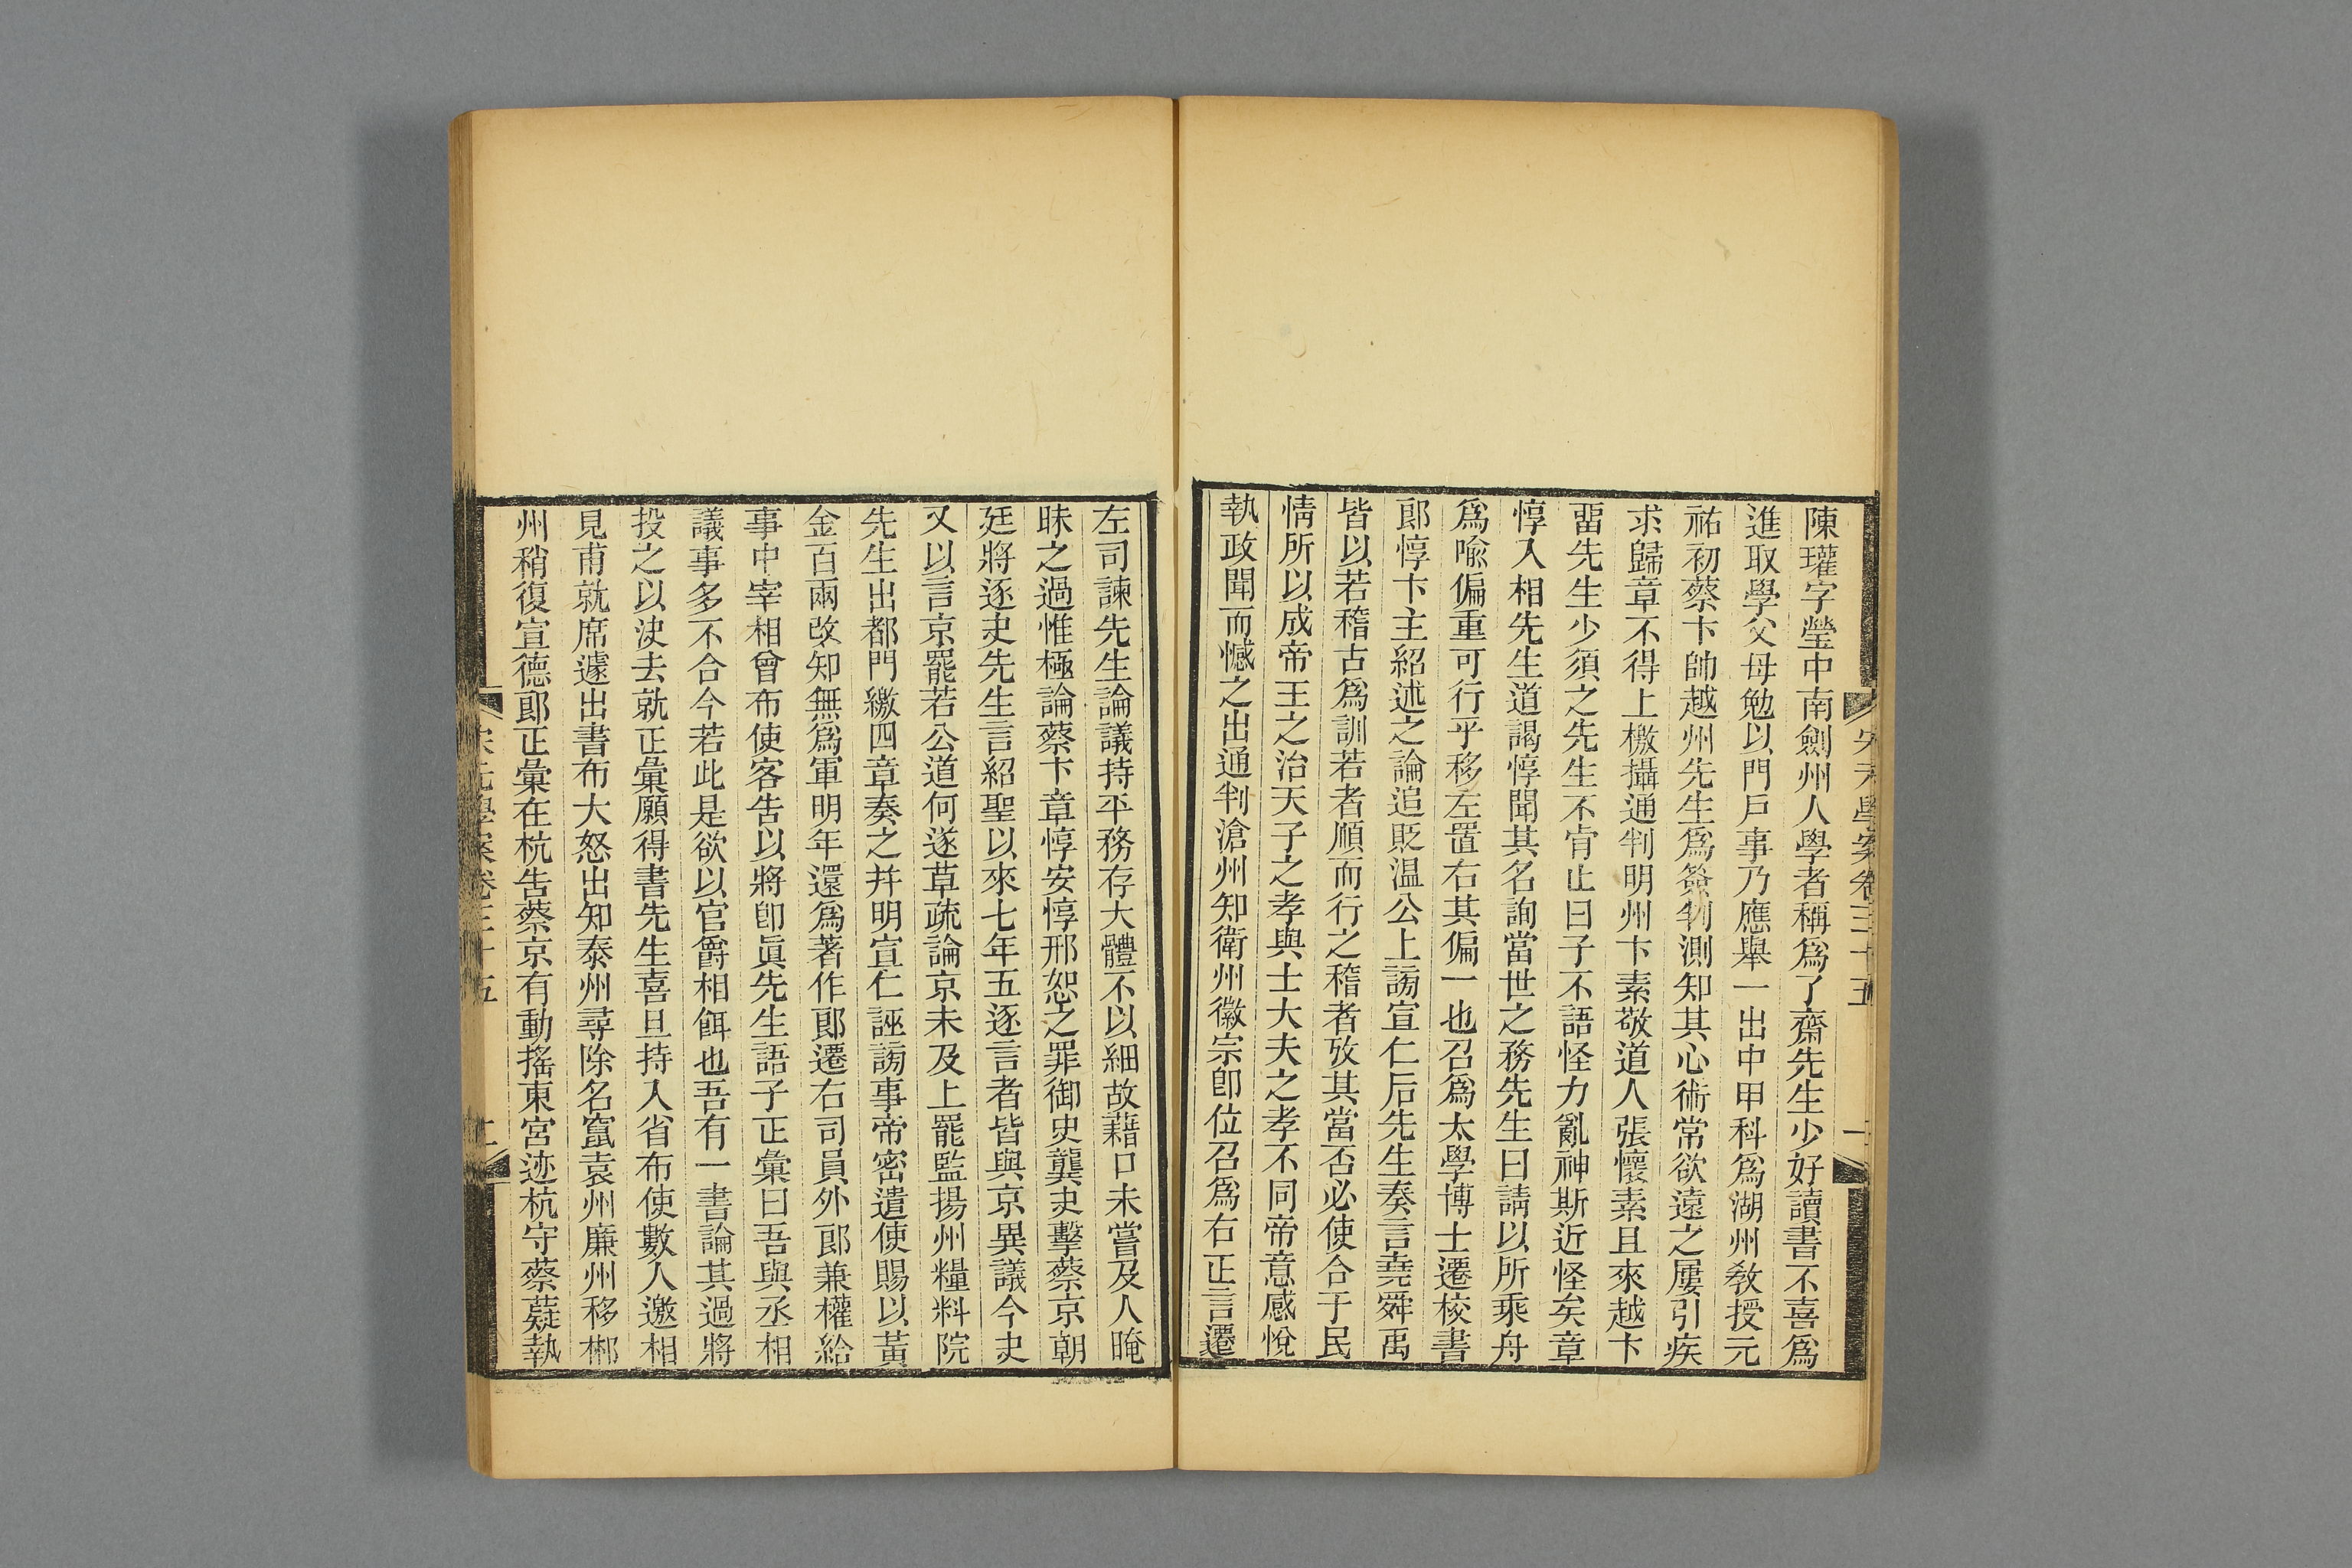 陳瓘字瑩中南劍州人學者稱爲了齋先生少好讀書不喜爲
進取學父母勉以門戶事乃應舉一出中甲科爲湖州敎授元
祐初蔡卞帥越州先生爲簽判測知其心術常欲遠之屢引疾
求歸章不得上檄攝通判明州卞素敬道人張懷素且來越卞
畱先生少須之先生不肯止曰子不語怪力亂神斯近怪矣章
惇入相先生道謁惇聞其名詢當世之務先生曰請以所乘舟
爲喩偏重可行乎移左置右其偏一也召爲太學博士遷校書
郞惇卞主紹述之論追貶温公上謗宣仁后先生奏言堯舜禹
皆以若稽古爲訓若者順而行之稽者攷其當否必使合于民
情所以成帝王之治天子之孝與士大夫之孝不同帝意感悅
執政聞而憾之出通判滄州知衛州徽宗卽位召爲右正言遷
左司諫先生論議持平務存大體不以細故藉口未嘗及人晻
昧之過惟極論蔡卞章惇安惇邢恕之罪御史龔夬擊蔡京朝
廷將逐夬先生言紹聖以來七年五逐言者皆與京異議今史
又以言京罷若公道何遂草疏論京未及上罷監揚州糧料院
先生出都門繳四章奏之幷明宣仁誣謗事帝密遣使賜以黃
金百兩改知無爲軍明年還爲著作郞遷右司員外郞兼權給
事中宰相曾布使客告以將卽眞先生語子正彙曰吾與丞相
議事多不合今若此是欲以官爵相餌也吾有一書論其過將
投之以決去就正彙願得書先生喜旦持入省布使數人邀相
見甫就席遽出書布大怒出知泰州尋除名竄袁州廉州移郴
州稍復宣德郞正彙在杭告蔡京有動搖東宮迹杭守蔡薿執
宋元學案卷三十五
二